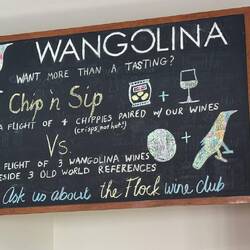 WANGOLINA
WANT MORE THAN A TASTING?
Chip 'n Sip
A FLIGHT OF 4 CHIPPIES PAIRED W/OUR WINES
(crisps, not hot!)
Vs.
FLIGHT OF 3 WANGOLINA WINES
BESIDE 3 OLD WORLD REFERENCES
Ask us about the Flock wine club